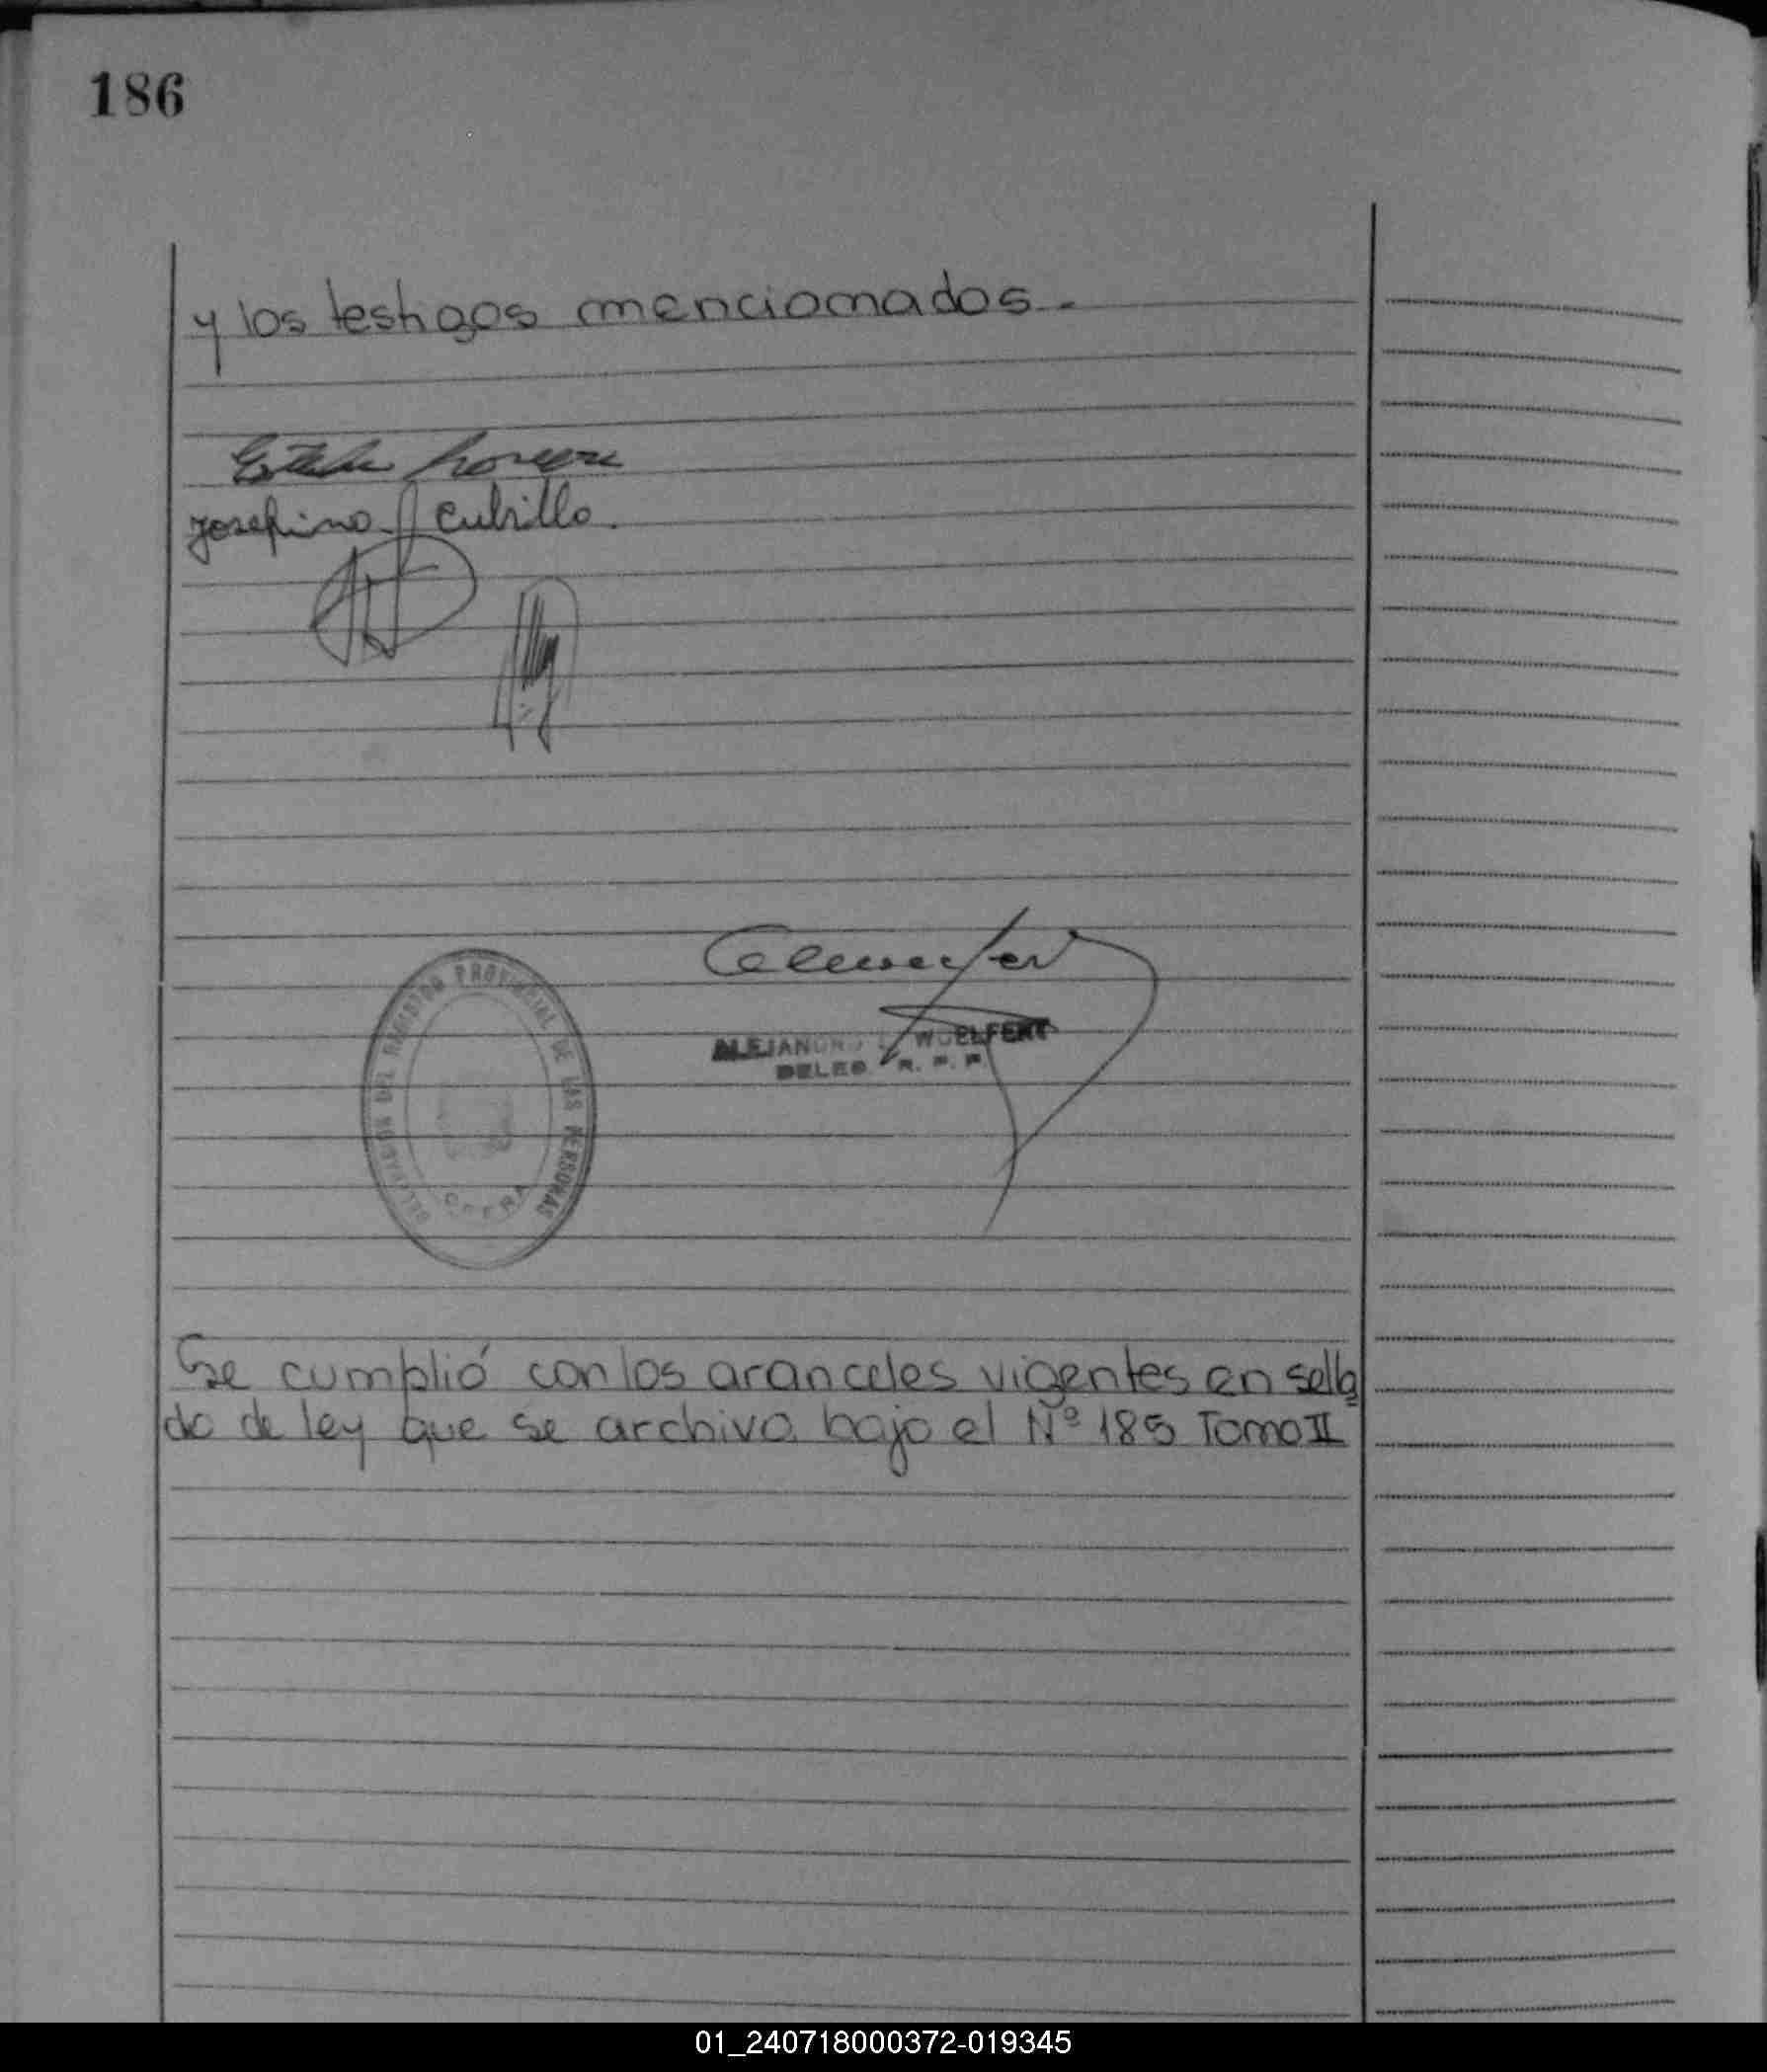 186
y los testigos mencionados.-
Josefina Cubillo.
DELEGACION DEL REGISTRO PROVINCIAL DE LAS PERSONAS
ALEJANDRO WOELFERT
DELEG. R. P. P.
Se cumplió con los aranceles vigentes en sella
do de ley que se archiva bajo el Nº 185 Tomo II
01_240718000372-019345